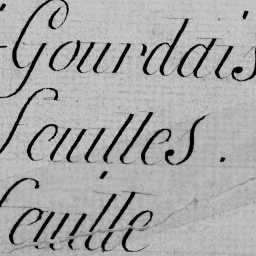 Gourdais
feuilles.
feuille